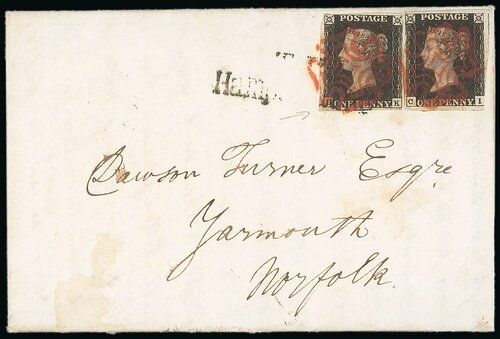 POSTAGE POSTAGE
ONE PENNY K
ONE PENNY C I
Dawson Turner Esqre
Yarmouth
Norfolk.